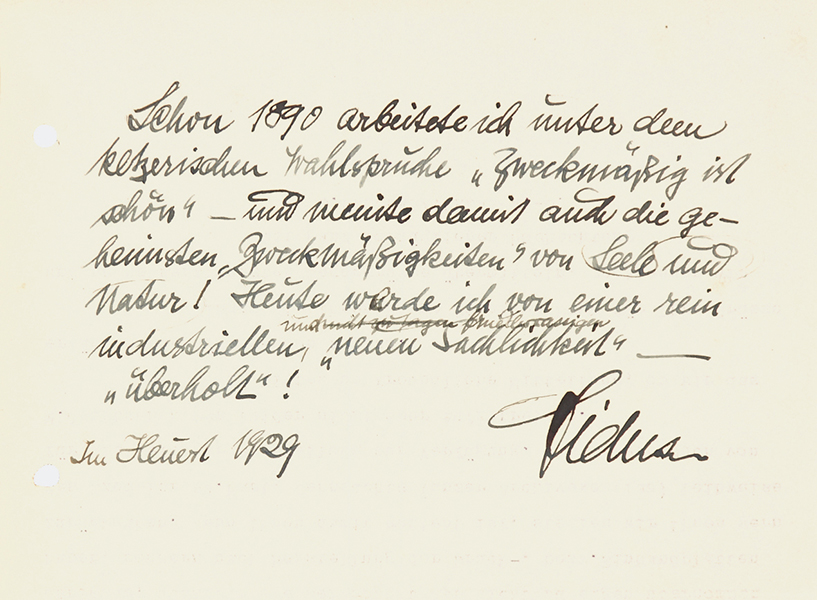 Schon 1890 arbeitete ich unter dem
ketzerischen Wahlspruche „Zweckmäßig ist
schön“ — und meinte damit auch die ge-
heimsten „Zweckmäßigkeiten“ von Seele und
Natur! Heute werde ich von einer rein
und nicht zu sagen
industriellen, „neuen Sachlichkeit“ —
„überholt“!
Im Heuert 1929
Fidus